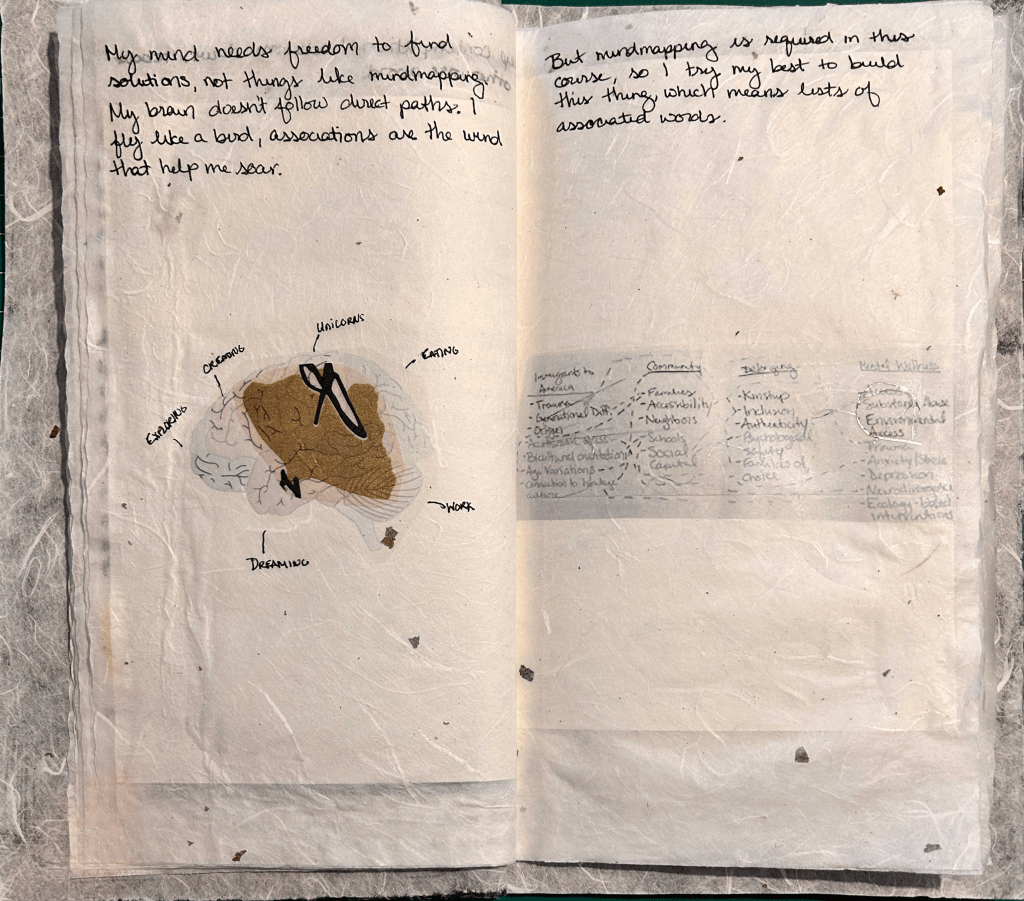 My mind needs freedom to find
solutions, not things like mindmapping.
My brain doesn't follow direct paths. I
fly like a bird, associations are the wind
that help me soar.
UNICORNS
CREATING
EATING
EXPLORING
WORK
DREAMING
But mindmapping is required in this
course, so I try my best to build
this thing, which means lists of
associated words.
Immigrants to
America
- Trauma
- Generational Diff.
- Origin
- Bicultural orientation
- Age Variations
- Connection to heritage
culture
Community
- Families
- Accessibility
- Neighbors
- Schools
- Social
Capital
Belonging
- Kinship
- Inclusion
- Authenticity
- Psychological
safety
- Families of
Choice
Mental Wellness
- Access
- Substance Abuse
- Environmental
Access
- Trauma
- Anxiety/Stress
- Depression
- Neurodivergence
- Ecology-based
Interventions